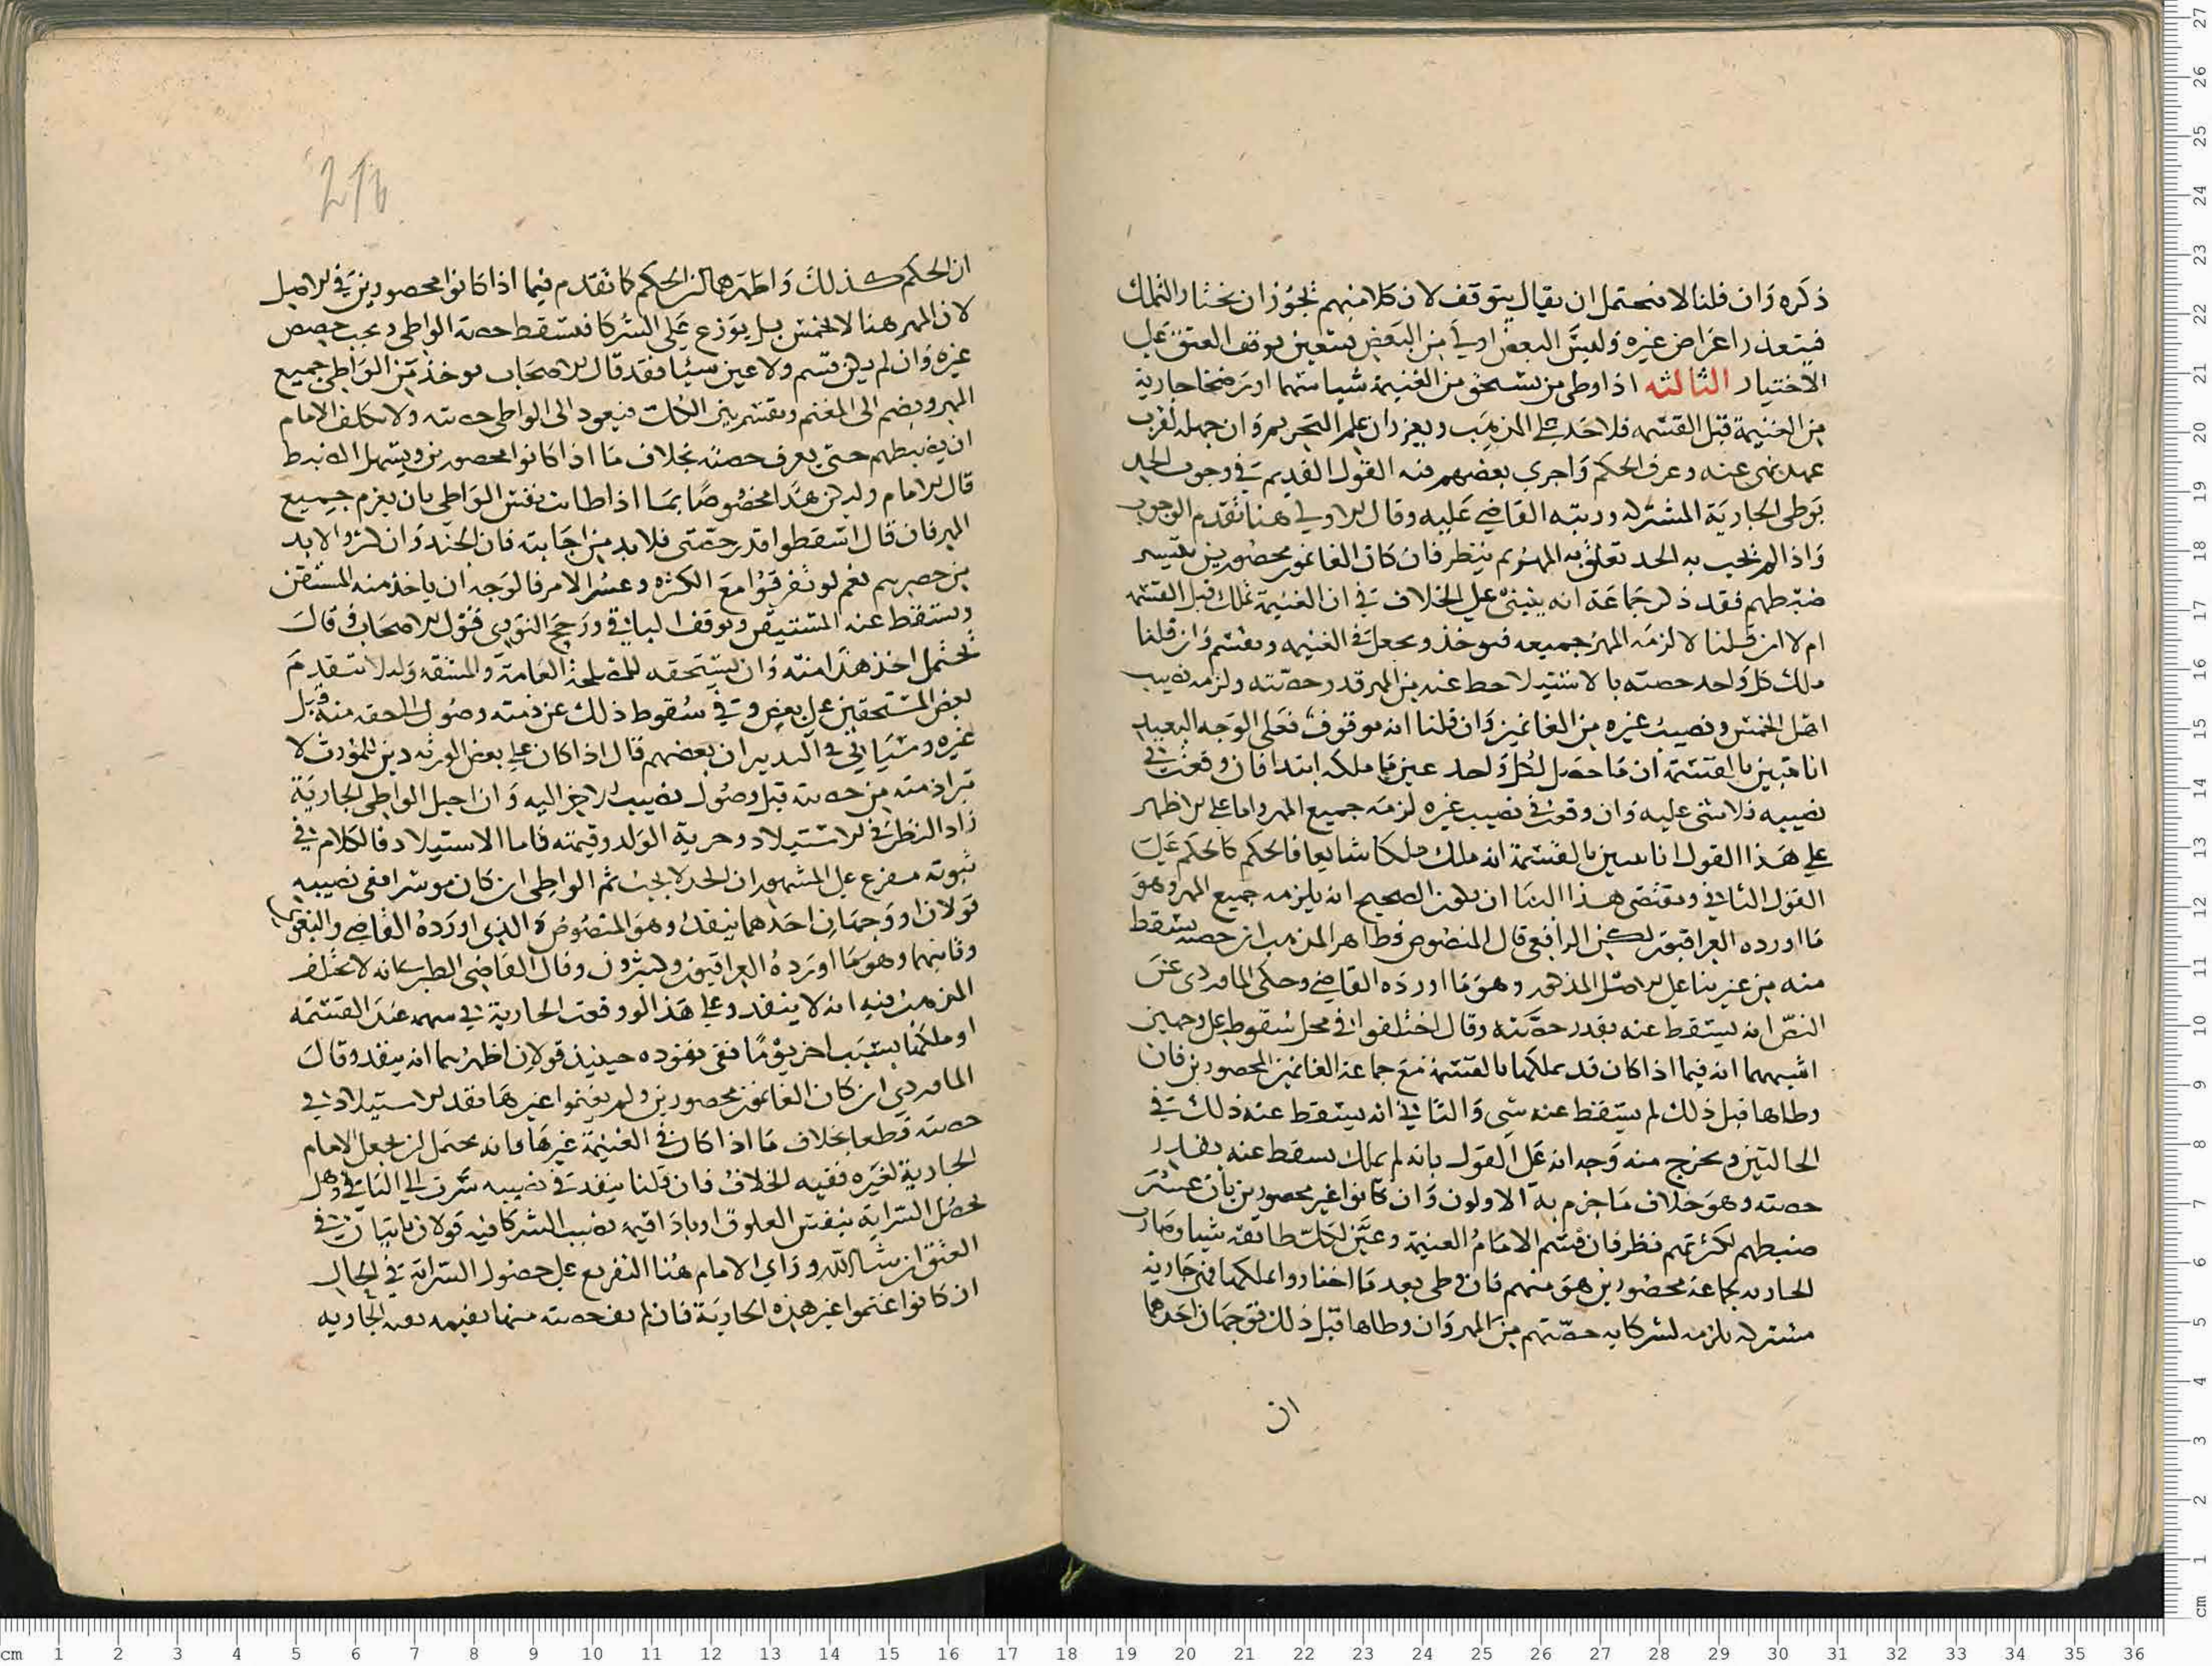 ذكره وان قلنا لا فيحتمل ان يقال يتوقف لان كلا منهم يجوز ان يختار التملك
فيتعذر اعراض غيره وليس البعض اولى من البعض فتعين توقف العتق على
الاختيار الثالثه اذا وطى من يستحق من الغنيمة شيا سهما او رضخا جارية
من الغنيمة قبل القسمه فلا حد على المذهب ويعزر ان علم التحريم وان جهله لقرب
عهده نهى عنه وعرف الحكم واجرى بعضهم فيه القول القديم في وجوب الحد
بوطى الجارية المشتركه ورتبه القاضي عليه وقال الاولى هنا تقدم الوجوب
واذا لم يجب به الحد تعلق به المهر ثم ينظر فان كان الغانمون محصورين يتيسر
ضبطهم فقد ذكر جماعة انه ينبني على الخلاف في ان الغنيمة تملك قبل القسمه
ام لا ان قلنا لا لزمه المهر جميعه فيوخذ ويجعل في الغنيمه ويقسم وان قلنا
ملك كل واحد حصته بالاستيلا حط عنه من المهر قدر حصته ولزمه نصيب
اهل الخمس ونصيب غيره من الغانمين وان قلنا انه موقوف فعلى الوجه البعيد
انا نتبين بالقسمة ان ما حصل لكل واحد عين ما ملكه ابتدا فان وقعت في
نصيبه فلا شى عليه وان وقعت في نصيب غيره لزمه جميع المهر واما على الاظهر
على هذا القول انا نتبين بالقسمة انه ملك ملكا شايعا فالحكم كالحكم على
القول الثاني ومقتضى هذا البنا ان يكون الصحيح انه يلزمه جميع المهر وهو
ما اورده العراقيون لكن الرافعي قال المنصوص وظاهر المذهب ان حصته تسقط
منه من غير بنا على الاصل المذكور وهو ما اورده القاضي وحكى الماوردى عن
النص انه يسقط عنه بقدر حصته وقال اختلفوا في محل سقوط على وجهين
اشبههما انه فيما اذا كان قد تملكها بالقسمة مع جماعة الغانمين المحصورين فان
وطاها قبل ذلك لم يسقط عنه شى والثاني انه يسقط عنه ذلك في
الحالتين ويخرج منه وجه انه على القول بانه لم يملك يسقط عنه بقدر
حصته وهو خلاف ما جزم به الاولون وان كانوا غير محصورين بان عسر
ضبطهم لكثرتهم نظر فان قسم الامام الغنيمة وعين لكل طايفه شيا وصارت
الجاريه لجماعة محصورين هو منهم فان وطى بعد ما اختاروا تملكها فهى جارية
مشتركه يلزمه لشركايه حصتهم من المهر وان وطاها قبل ذلك فوجهان احدهما
ان
216
ان الحكم كذلك واظهرهما ان الحكم كما تقدم فيما اذا كانوا محصورين في الاصل
لان المهر هنا لا يخمس بل يوزع على الشركا فتسقط حصة الواطى وتجب حصص
غيره وان لم يكن قسم ولا عين شيا فقد قال الاصحاب يوخذ من الواطى جميع
المهر ويضم الى المغنم ويقسم بين الكل فيعود الى الواطى حصته ولا يكلف الامام
ان يضبطهم حتى يعرف حصته بخلاف ما اذا كانوا محصورين ويسهل الضبط
قال الامام وليكن هذا مخصوصا بما اذا طابت نفس الواطى بان يغرم جميع
المهر فان قال اسقطوا قدر حصتى فلا بد من اجابته فان الجند وان كثروا لا بد
من حصرهم نعم لو تفرقوا مع الكثرة وعسر الامر فالوجه ان ياخذ منه المستيقن
ويسقط عنه المستيقن ويوقف الباقي ورجح النووي قول الاصحاب وقال
يحتمل اخذ هذا منه وان يستحقه للمصلحة العامة وللمشقه ولئلا يتقدم
بعض المستحقين على بعض وفي سقوط ذلك عن ذمته وصول الحق منه قبل
غيره وسياتي في التدبير ان بعضهم قال اذا كان على بعض الورثه دين للموروث لا
تبرا ذمته من حصته قبل وصول نصيب الاخر اليه وان احبل الواطى الجارية
زاد النظر في الاستيلاد وحرية الولد وقيمته فاما الاستيلاد فالكلام في
ثبوته مفرع على المشهور ان الحد لا يجب ثم الواطى ان كان موسرا ففى نصيبه
قولان او وجهان احدهما ينفذ وهو المنصوص والذى اورده القاضي والبغوي
وثانيهما وهو ما اورده العراقيون وكثيرون وقال القاضى الطبري انه لا يختلف
المذهب فيه انه لا ينفذ وعلى هذا لو وقعت الجارية في سهمه عند القسمه
او ملكها بسبب اخر يوما ففى نفوذه حينيذ قولان اظهرهما انه ينفذ وقال
الماوردي ان كان الغانمون محصورين ولم يغنموا غيرها نفذ الاستيلاد في
حصته قطعا بخلاف ما اذا كان في الغنيمة غيرها فانه يحتمل ان يجعل الامام
الجارية لغيره ففيه الخلاف فان قلنا ينفذ في نصيبه سرى الى الباقي وهل
تحصل السراية بنفس العلوق او باداقيمه نصيب الشركا فيه قولان ياتيان في
العتق ان شا الله وراى الامام هنا التفريع على حصول السراية في الحال
ان كانوا غنموا غير هذه الجارية فان لم تف حصته منها بقيمه بعد الجاريه